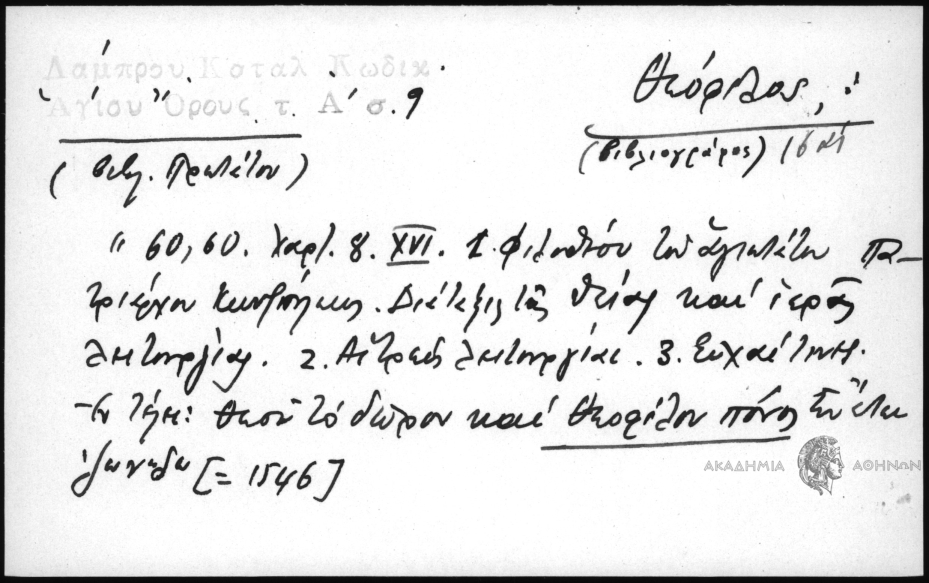 Λάμπρου Καταλ Κωδικ
Αγίου Όρους τ. Α' σ. 9
Θεόφιλος,
(βιβλ. Πρωτάτου)
(βιβλιογράφος)
" 60, 60. Χαρτ. 8. XVI. 1. Φιλοθέου τοῦ ἁγιωτάτου Πα-
τριάρχου Κων)πόλεως. Διάταξις τῆς θείας καὶ ἱερᾶς
λειτουργίας. 2. Αἱ τρεῖς λειτουργίαι. 3. Εὐχαί τινες.
Ἐν τέλει: Θεοῦ τὸ δῶρον καὶ Θεοφίλου πόνος Ἐν ἔτει
[= 1546]
ΑΚΑΔΗΜΙΑ ΑΘΗΝΩΝ